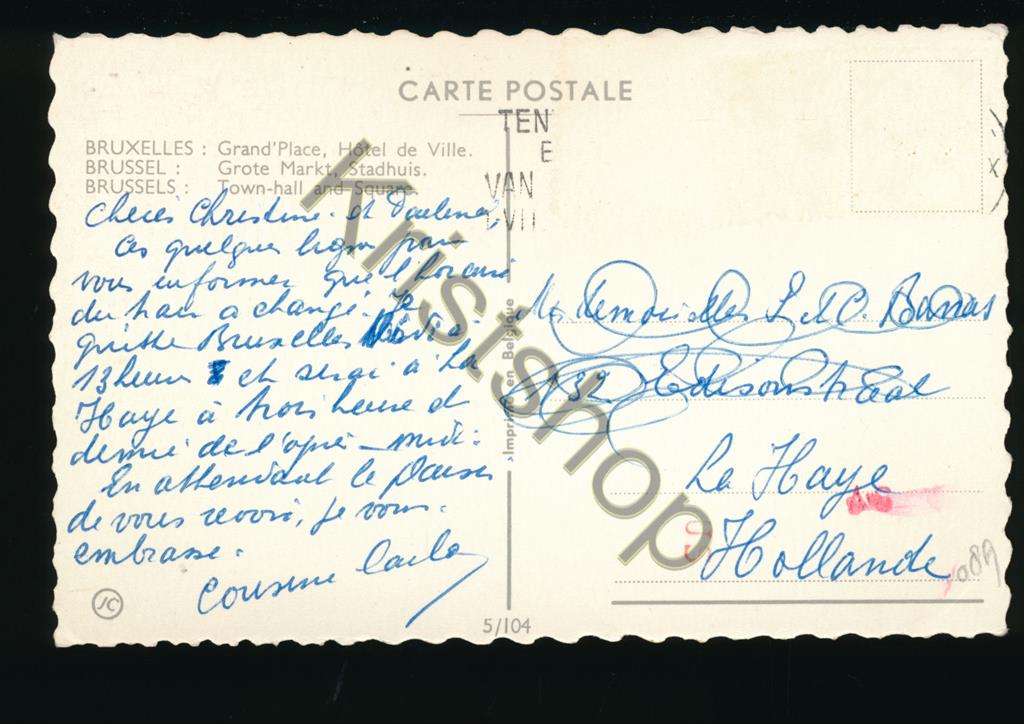 CARTE POSTALE
TEN
E
VAN
VII
X
BRUXELLES : Grand'Place, Hôtel de Ville.
BRUSSEL : Grote Markt, Stadhuis.
BRUSSELS : Town-hall and Square.
Cheries Christine et
Ces quelques lignes pour
vous informer que l'horaire
du train a changé. Je
quitte Bruxelles
13 heures et serai à La
Haye à trois heure et
demie de l'après-midi.
En attendant le plaisir
de vous revoir, je vous
embrasse.
Cousine Carla
Imprimé en Belgique
Mesdemoiselles L et C. Bannas
132 Edisonstraat
La Haye
Hollande
1089
JC
5/104
Kristshop